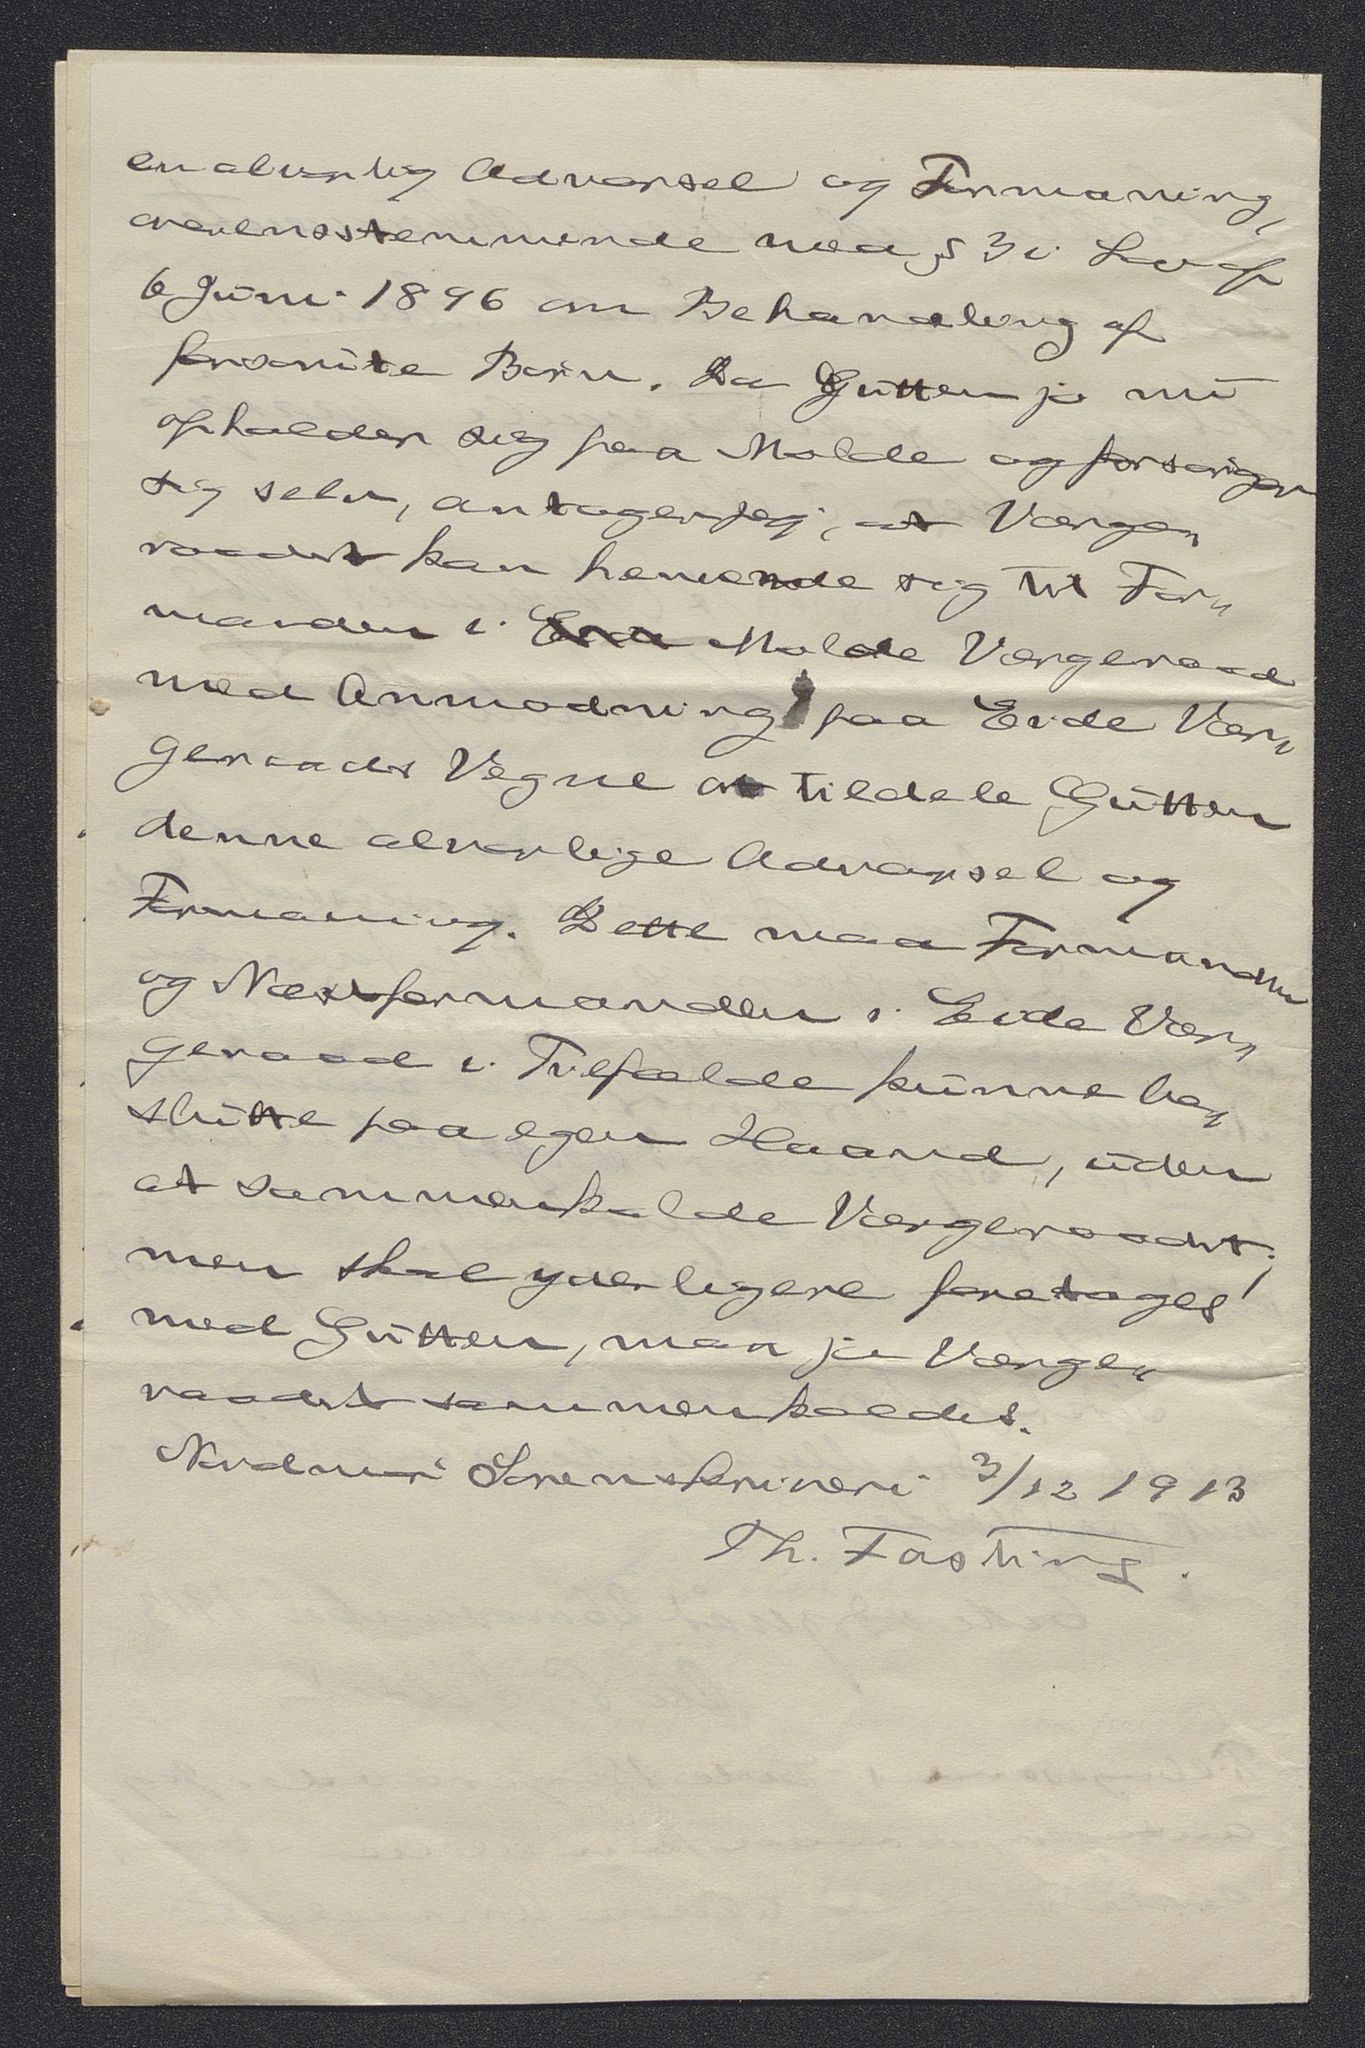 en alvorlig Advarsel og Formaning,
overensstemmende med § 3 i Lov af
6 Juni 1896 om Behandling af
forsømte Børn. Da Gutten jo nu
opholder sig paa Molde og forsørger
sig selv, antager jeg, at Værge„
raadet kan henvende sig til For„
manden i Molde Værgeraad
med Anmodning paa Eide Vær„
geraads Vegne at tildele Gutten
denne alvorlige Advarsel og
Formaning. Dette maa Formanden
og Næstformanden i Eide Vær„
geraad i Tilfælde kunne be„
slutte paa egen Haand, uden
at sammenkalde Værgeraadet;
men skal yderligere foretages
med Gutten, maa jo Værge„
raadet sammenkaldes.
Nordmøre Sorenskriveri 3/12 1913
Th. Fasting.